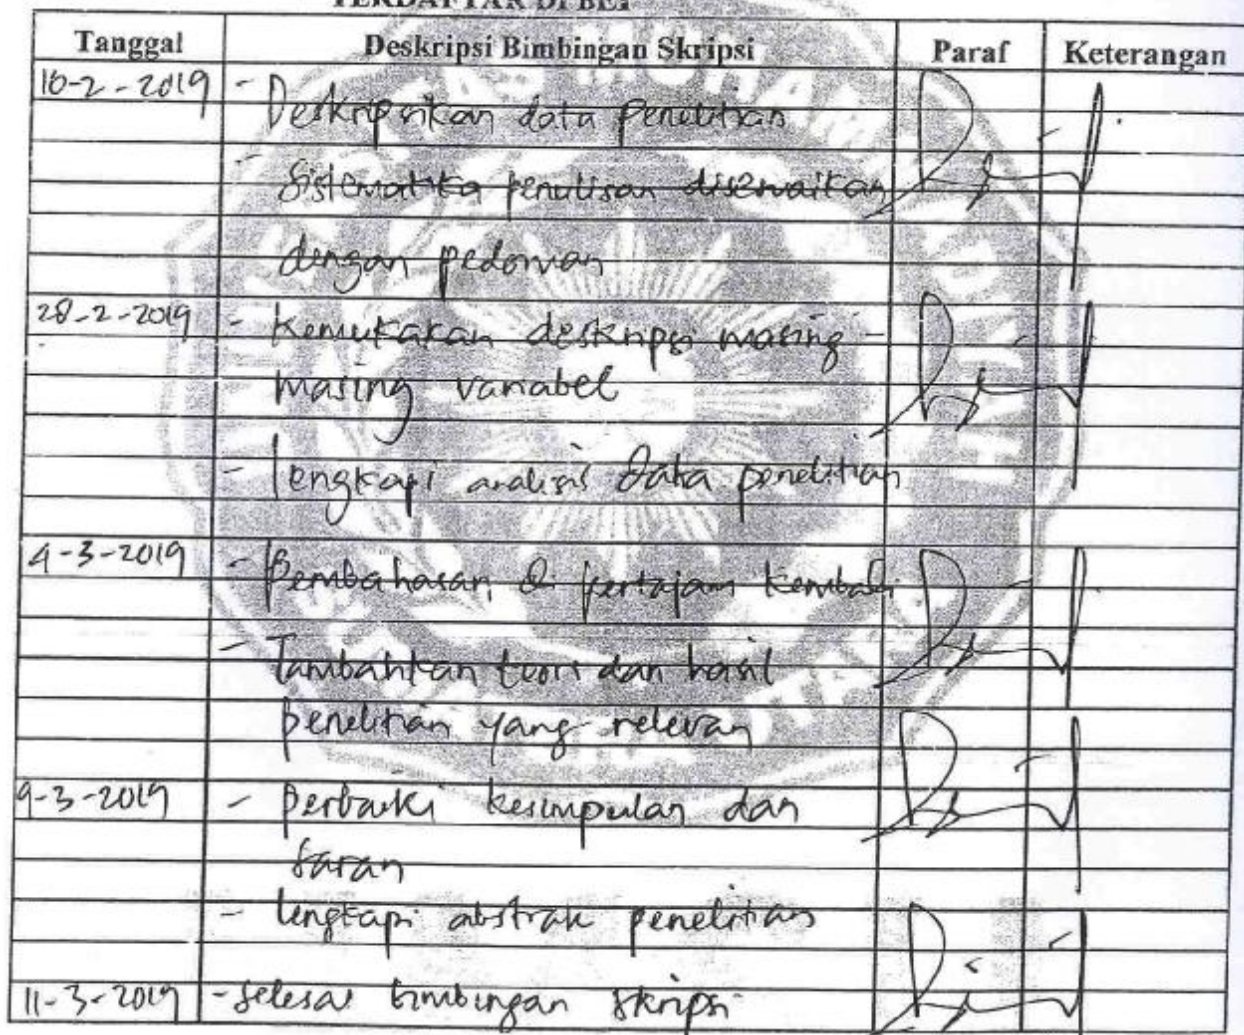 TERDAFTAR DI BEI
Tanggal Deskripsi Bimbingan Skripsi Paraf Keterangan
16-2-2019 - Deskripsikan data penelitian
- Sistematika penulisan disesuaikan
dengan pedoman
28-2-2019 - Kemukakan deskripsi masing -
masing variabel
- lengkapi analisis data penelitian
4-3-2019 - Pembahasan di pertajam kembali
- Tambahkan teori dan hasil
penelitian yang relevan
9-3-2019 - perbaiki kesimpulan dan
saran
- lengkapi abstrak penelitian
11-3-2019 - selesai bimbingan skripsi